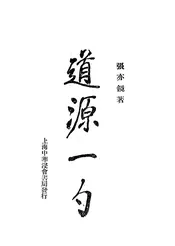 張亦鏡著
道源一勺
上海中華浸會書局發行